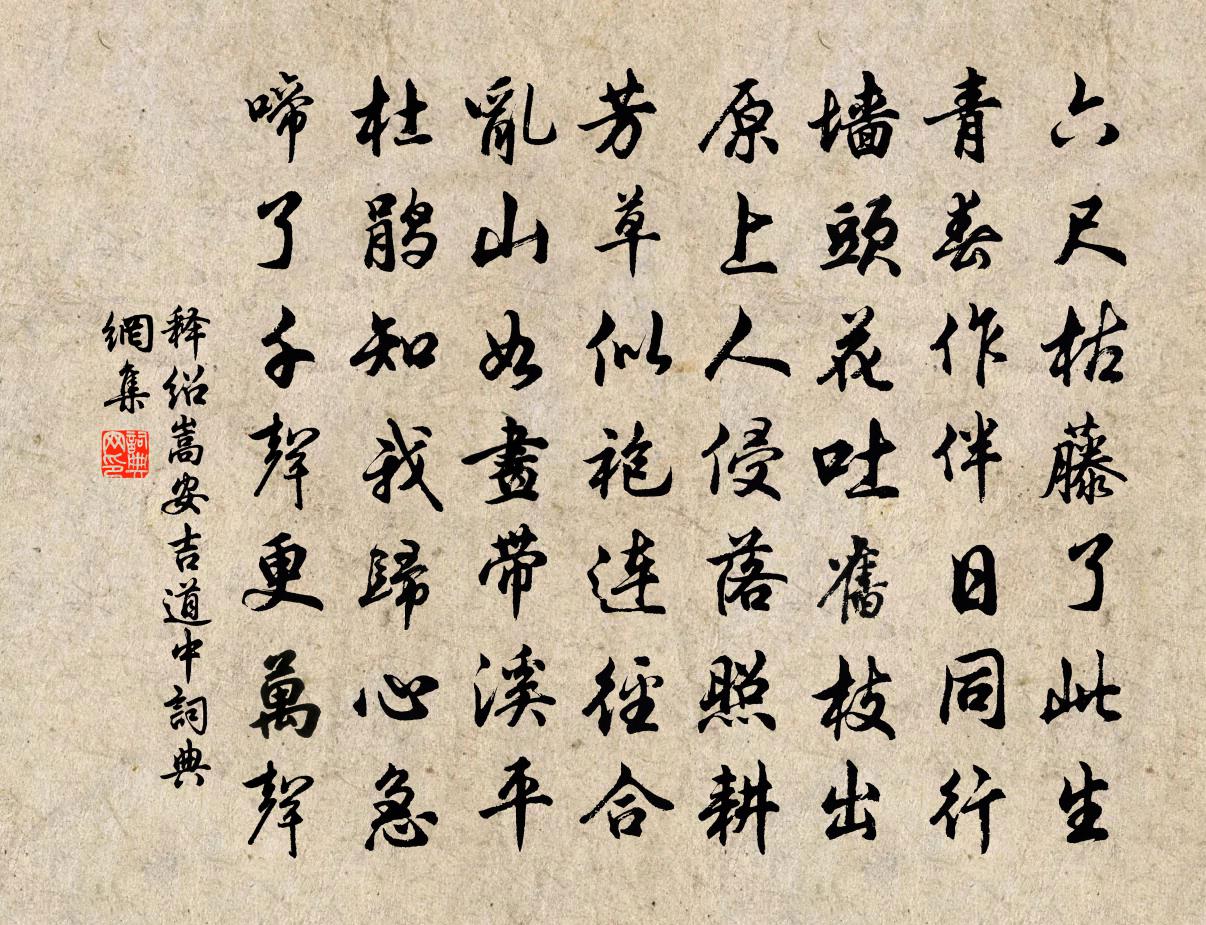 六尺枯藤了此生
青春作伴日同行
墙頭花吐舊枝出
原上人侵落照耕
芳草似袍连徑合
亂山如畫带溪平
杜鹃知我歸心急
啼了千聲更萬聲
释绍嵩安吉道中詞典
網集
詞典
网印